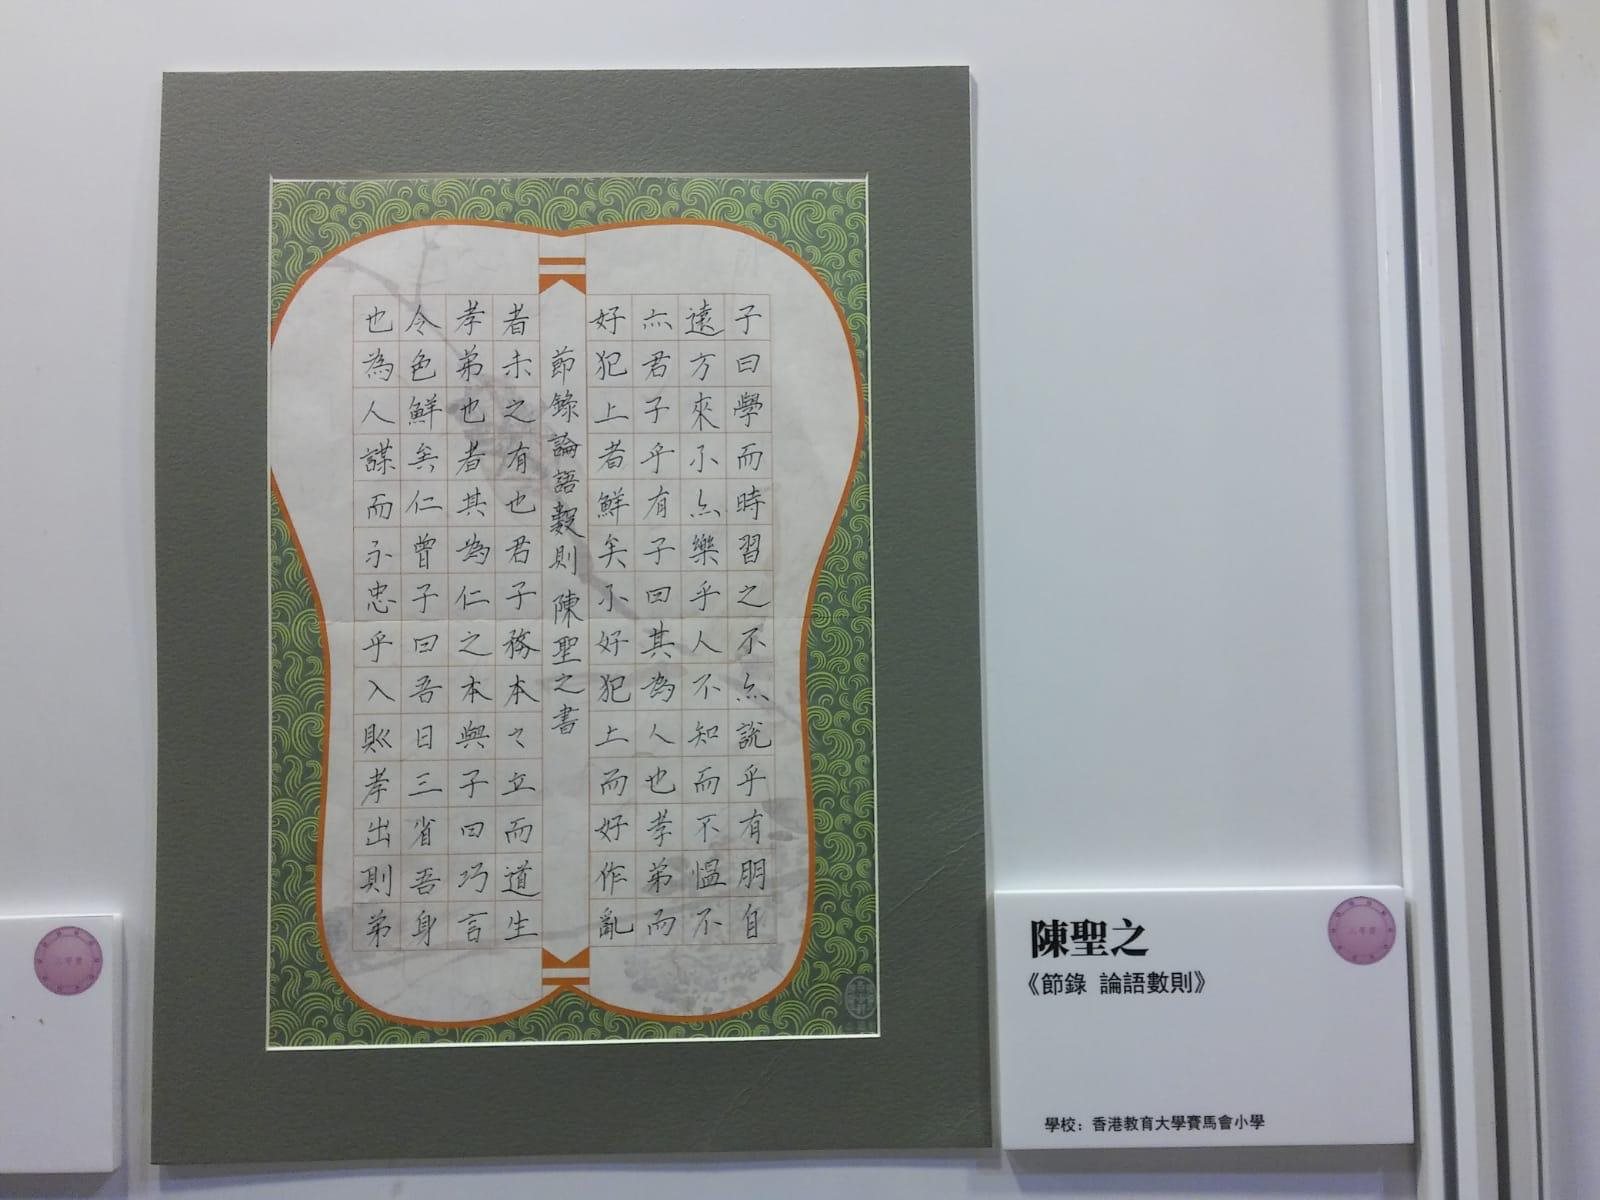 子曰學而時習之不亦說乎有朋自
遠方來不亦樂乎人不知而不慍不
亦君子乎有子曰其為人也孝弟而
好犯上者鮮矣不好犯上而好作亂
節錄論語數則 陳聖之書
者未之有也君子務本々立而道生
孝弟也者其為仁之本與子曰巧言
令色鮮矣仁曾子曰吾日三省吾身
也為人謀而不忠乎入則孝出則弟
陳聖之
《節錄 論語數則》
學校：香港教育大學賽馬會小學